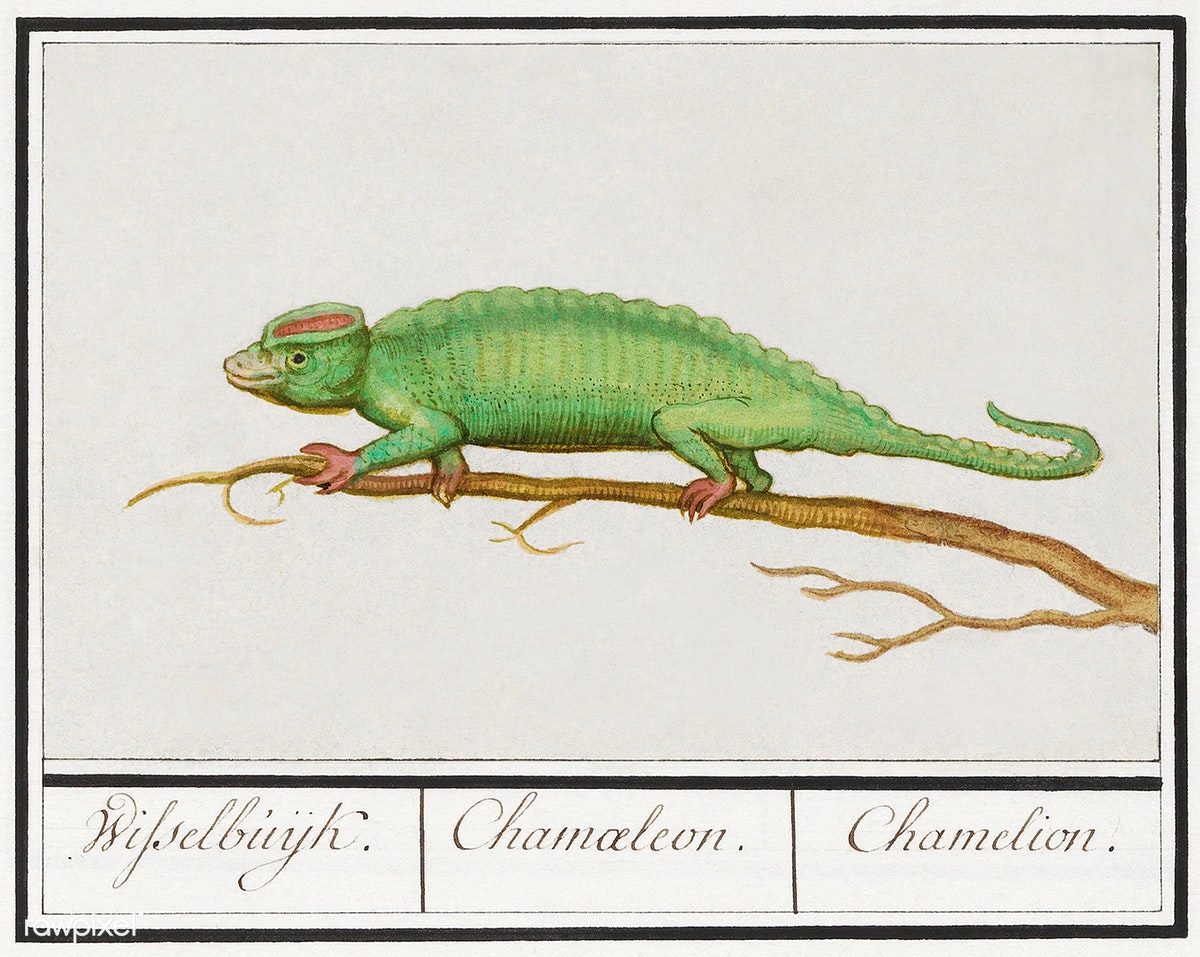 Wisselbuijk.
Chamæleon.
Chamelion.
rawpixel